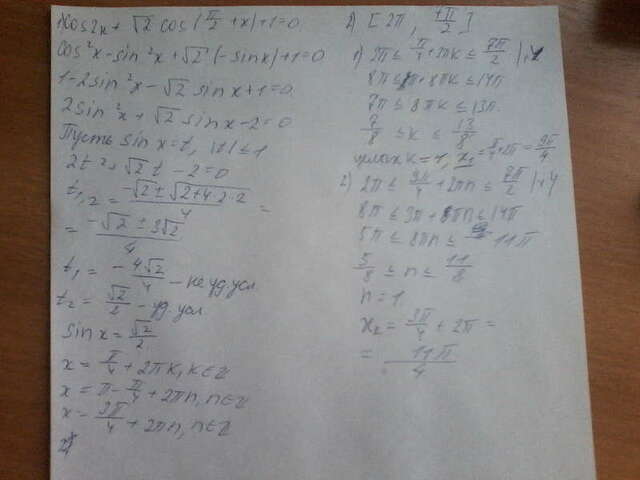 1) cos2x + √2 cos(π/2 + x) + 1 = 0
cos²x - sin²x + √2 · (-sinx) + 1 = 0
1 - 2sin²x - √2 sinx + 1 = 0
2sin²x + √2 sinx - 2 = 0
Пусть sinx = t, |t| ≤ 1
2t² + √2 t - 2 = 0
t₁,₂ = (-√2 ± √(2+4·2·2))/4 =
= (-√2 ± 3√2)/4
t₁ = -4√2/4 - не уд. усл
t₂ = √2/2 - уд. усл
sinx = √2/2
x = π/4 + 2πk, k∈Z
x = π - π/4 + 2πn, n∈Z
x = 3π/4 + 2πn, n∈Z
2)
2) [2π, 7π/2]
1) 2π ≤ π/4 + 2πk ≤ 7π/2 | ·4
8π ≤ π + 8πk ≤ 14π
7π ≤ 8πk ≤ 13π
7/8 ≤ k ≤ 13/8
k = 1, x₁ = π/4 + 2π = 9π/4
2) 2π ≤ 3π/4 + 2πn ≤ 7π/2 | ·4
8π ≤ 3π + 8πn ≤ 14π
5π ≤ 8πn ≤ 11π
5/8 ≤ n ≤ 11/8
n = 1
x₂ = 3π/4 + 2π =
= 11π/4